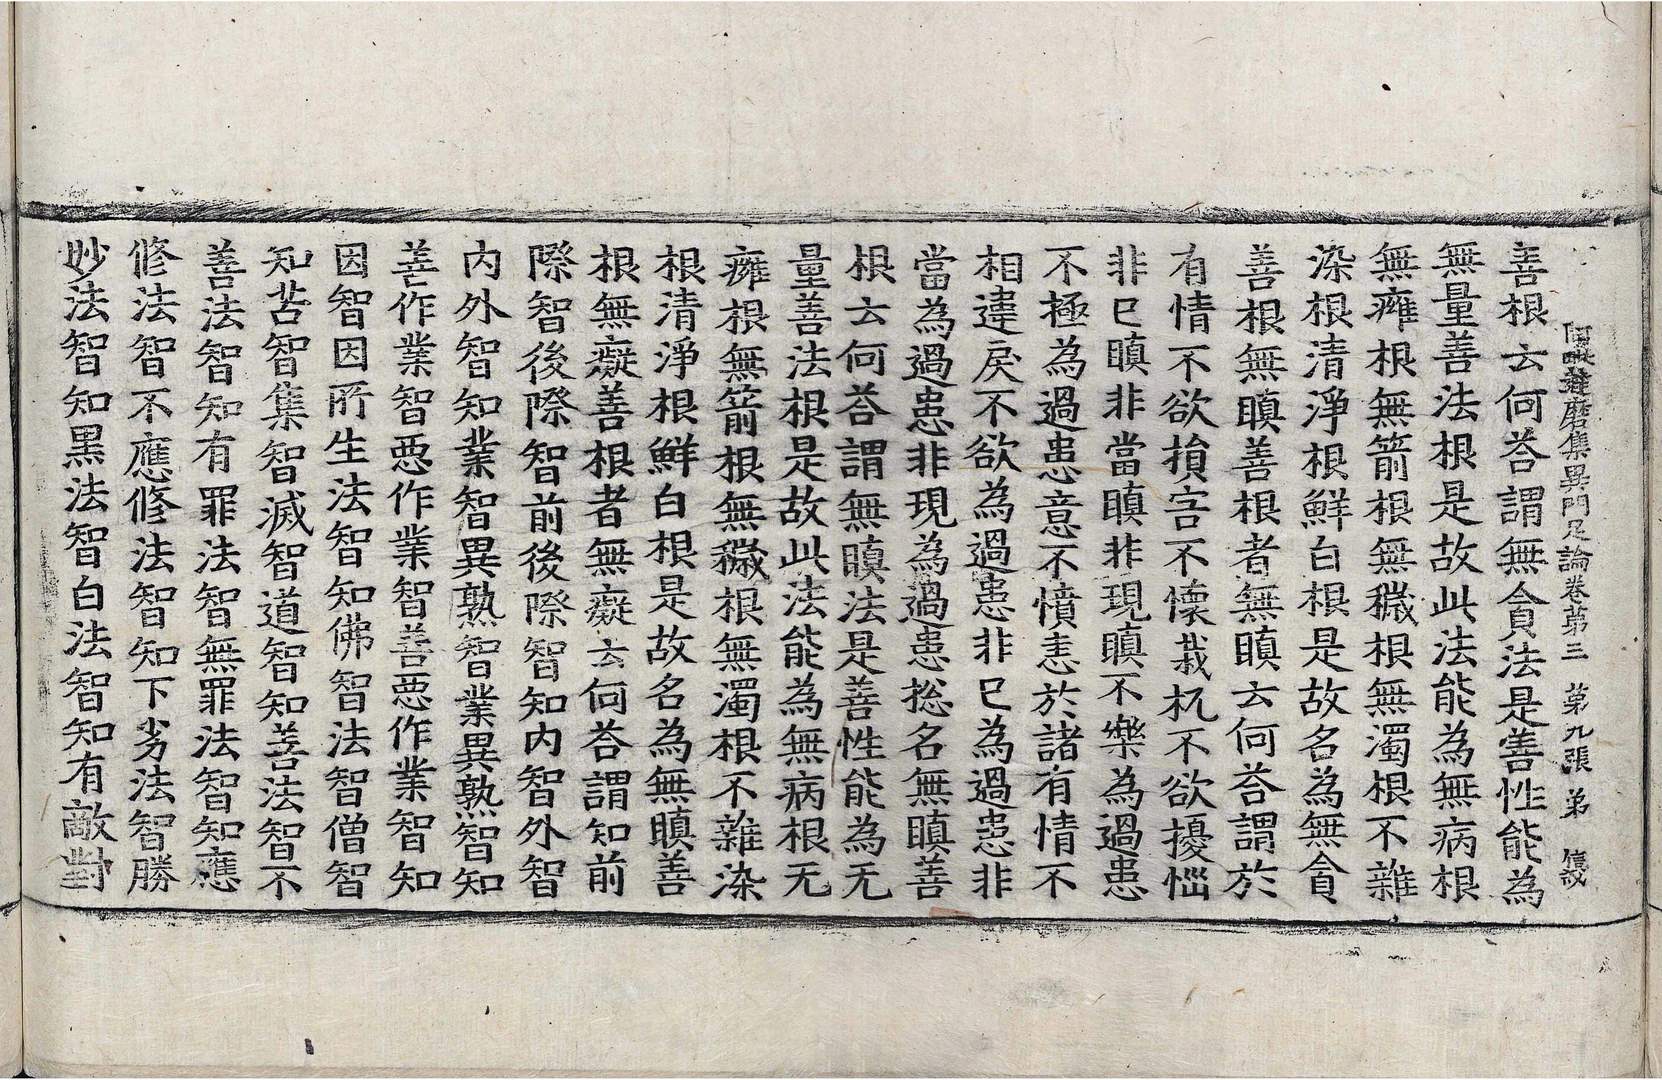 阿毗達磨集異門足論卷第三 第九張 弟 儀
善根云何荅謂無貪法是善性能為
無量善法根是故此法能為無病根
無癰根無箭根無穢根無濁根不雜
染根清淨根鮮白根是故名為無貪
善根無瞋善根者無瞋云何荅謂於
有情不欲損害不懷栽杌不欲擾惱
非已瞋非當瞋非現瞋不樂為過患
不極為過患意不憤恚於諸有情不
相違戾不欲為過患非已為過患非
當為過患非現為過患捴名無瞋善
根云何荅謂無瞋法是善性能為无
量善法根是故此法能為無病根无
癰根無箭根無穢根無濁根不雜染
根清淨根鮮白根是故名為無瞋善
根無癡善根者無癡云何荅謂知前
際智後際智前後際智知內智外智
內外智知業智異熟智業異熟智知
善作業智惡作業智善惡作業智知
因智因所生法智知佛智法智僧智
知苦智集智滅智道智知善法智不
善法智知有罪法智無罪法智知應
修法智不應修法智知下劣法智勝
妙法智知黑法智白法智知有敵對